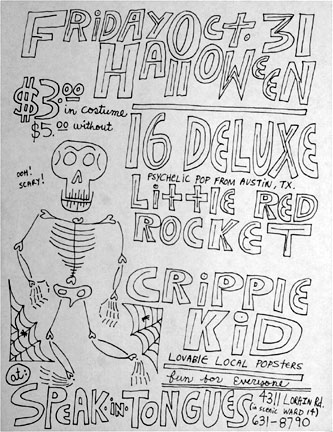 FRIDAY OCT. 31
HALLOWEEN
$3.00
in costume
$5.00 without
16 DELUXE
PSYCHELIC POP FROM AUSTIN, TX.
OOH!
SCARY!
LITTLE RED
ROCKET
CRIPPIE
KID
LOVABLE LOCAL POPSTERS
fun for everyone
at:
SPEAK·IN·TONGUES
4311 LORAIN Rd.
(in scenic WARD 14)
631-8790